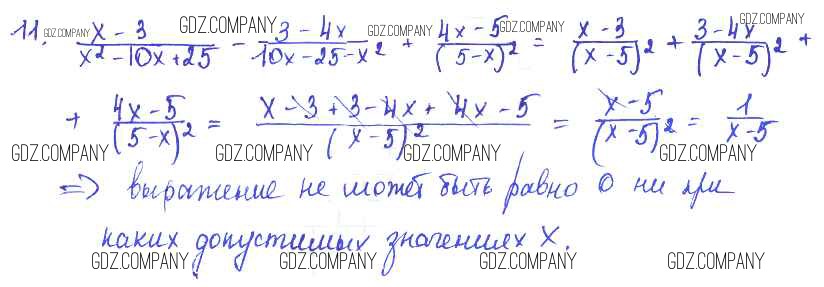 11. (x - 3)/(x² - 10x + 25) - (3 - 4x)/(10x - 25 - x²) + (4x - 5)/(5 - x)² = (x - 3)/(x - 5)² + (3 - 4x)/(x - 5)² +
+ (4x - 5)/(5 - x)² = (x - 3 + 3 - 4x + 4x - 5)/(x - 5)² = (x - 5)/(x - 5)² = 1/(x - 5)
=> выражение не может быть равно 0 ни при
каких допустимых значениях X.
GDZ.COMPANY GDZ.COMPANY GDZ.COMPANY GDZ.COMPANY GDZ.COMPANY
GDZ.COMPANY GDZ.COMPANY GDZ.COMPANY GDZ.COMPANY
GDZ.COMPANY GDZ.COMPANY GDZ.COMPANY GDZ.COMPANY